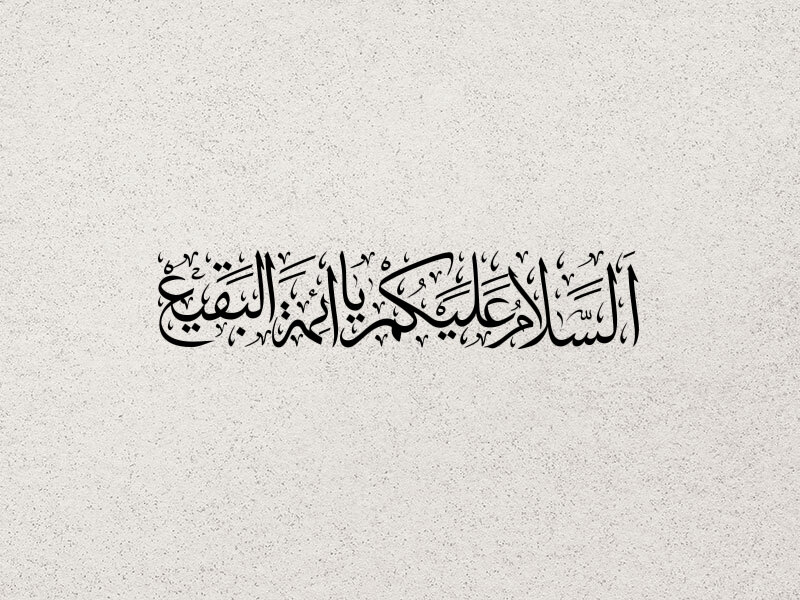 اَلسَّلامُ عَلَيَكُمْ يا ائِمَةَ البَقَيعْ